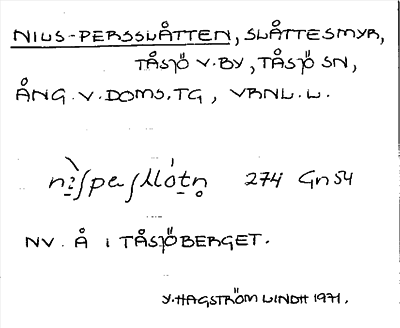 NILS-PERSSLÅTTEN, SLÅTTESMYR,
TÅSJÖ V. BY, TÅSJÖ SN,
ÅNG. V. DOMS. TG, VRNL. L.
274 Gn 54
NV. Å I TÅSJÖBERGET.
Y. HAGSTRÖM LINDH 1971.